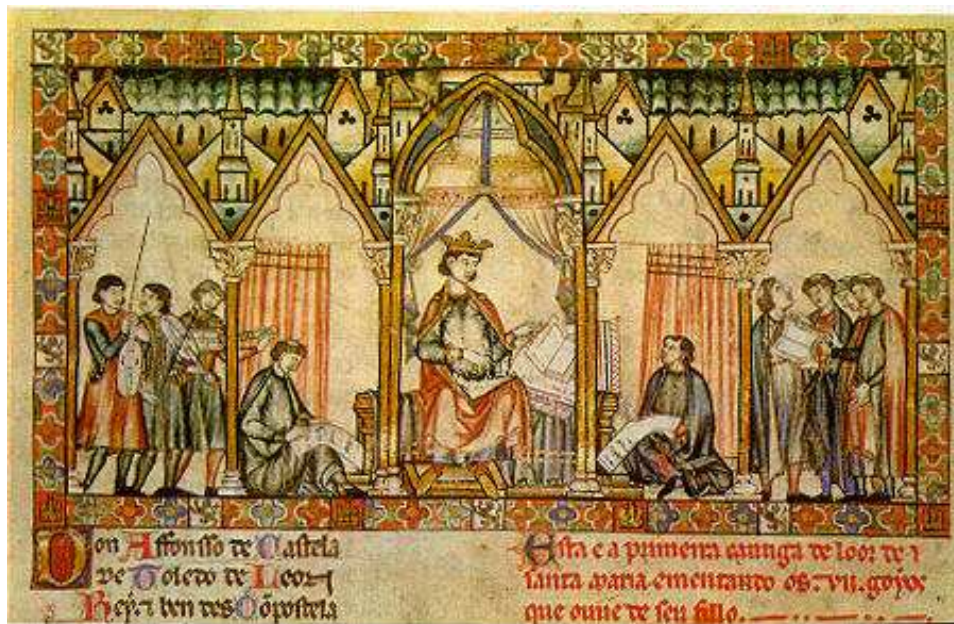 Don Affonsso de Castela
de Toledo de Leon
Rey. ⁊ ben des Cõpostela
Esta e a primeira cantiga de loor de
santa maria ementando os. vii. goyos
que ouue de seu fillo.